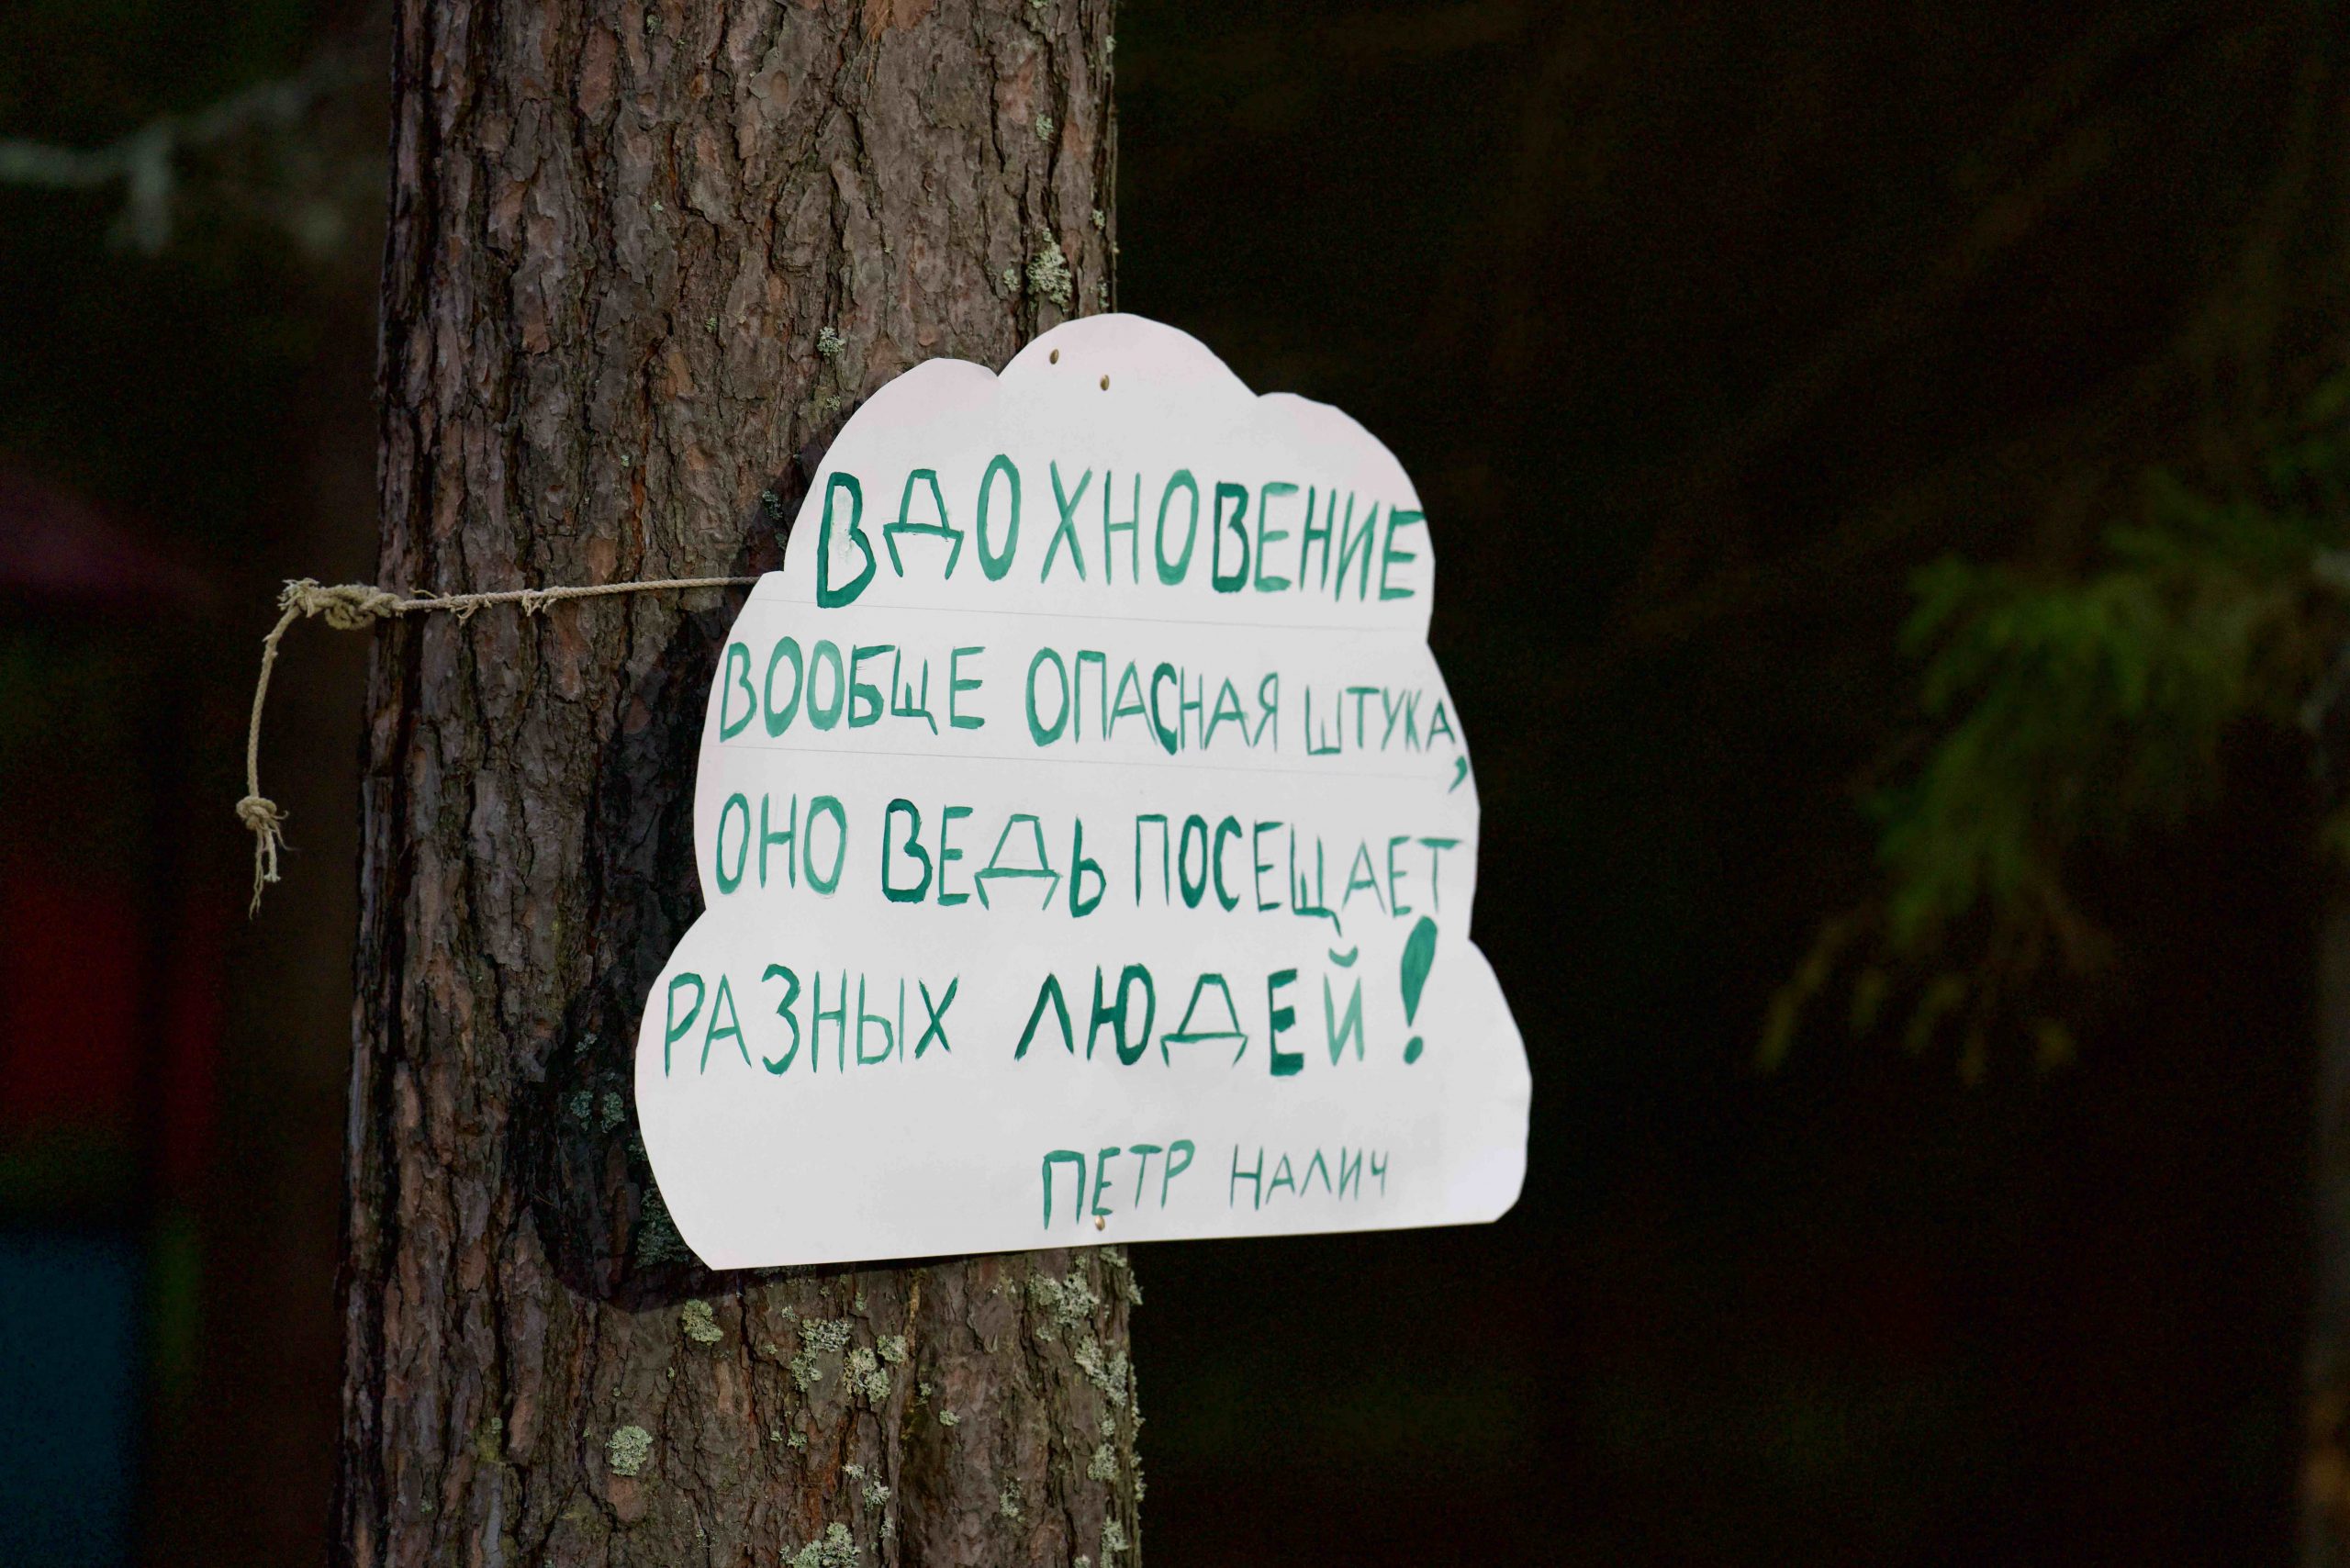 ВДОХНОВЕНИЕ
ВООБЩЕ ОПАСНАЯ ШТУКА,
ОНО ВЕДЬ ПОСЕЩАЕТ
РАЗНЫХ ЛЮДЕЙ!
ПЕТР НАЛИЧ